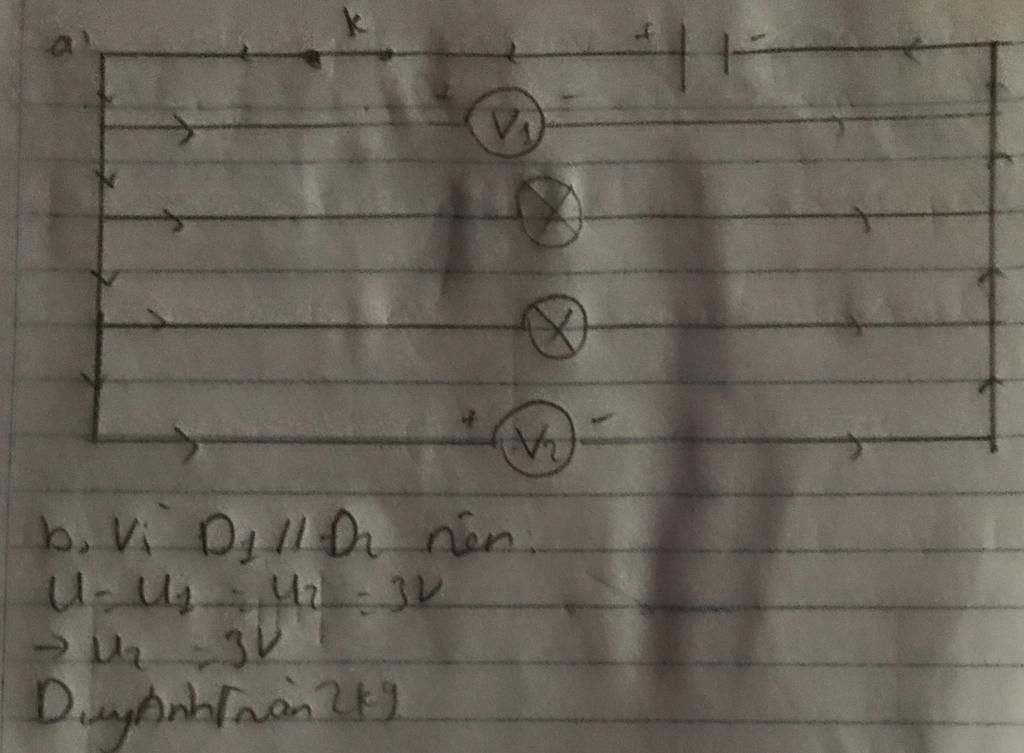 a,
k
+ -
+ V1 -
+ V2 -
b, Vì Đ1 // Đ2 nên:
U = U1 = U2 = 3V
→ U2 = 3V
DuyAnhTrần2k9